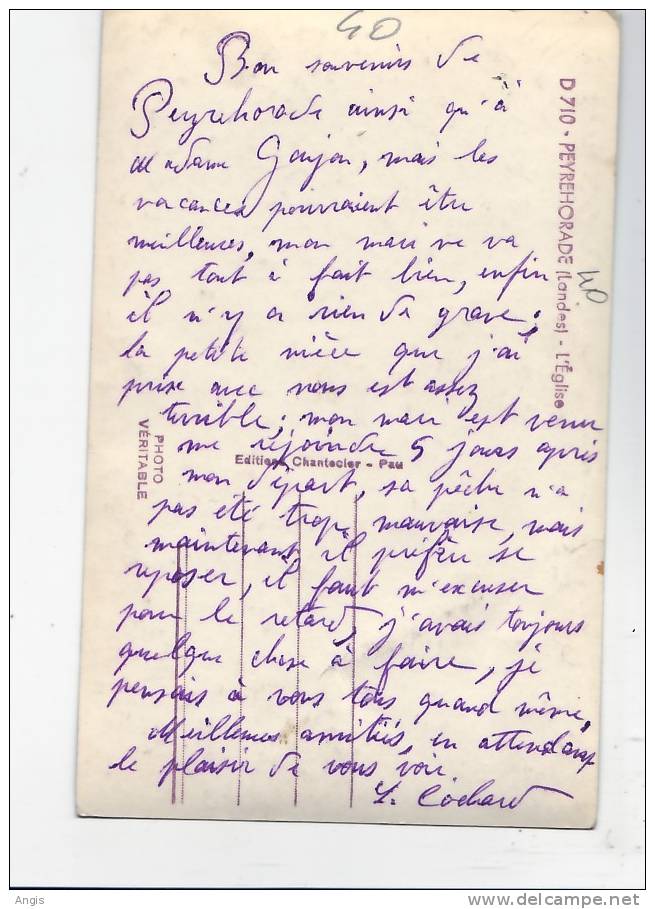 40
Bon souvenirs de
Peyrehorade ainsi qu'à
Madame Goujon, mais les
vacances pourraient être
meilleures, mon mari ne va
pas tout à fait bien, enfin
il n'y a rien de grave ;
la petite nièce que j'ai
prise avec nous est assez
terrible ; mon mari est venu
me rejoindre 5 jours après
mon départ, sa pêche n'a
pas été trop mauvaise, mais
maintenant il préfère se
reposer, il faut m'excuser
pour le retard, j'avais toujours
quelque chose à faire, je
pensais à vous tous quand même,
Meilleures amitiés, en attendant
le plaisir de vous voir
Cochard
D 710 - PEYREHORADE (Landes) - L'Église
40
Editions Chantecler - Pau
PHOTO
VÉRITABLE
Angis
www.delcampe.net